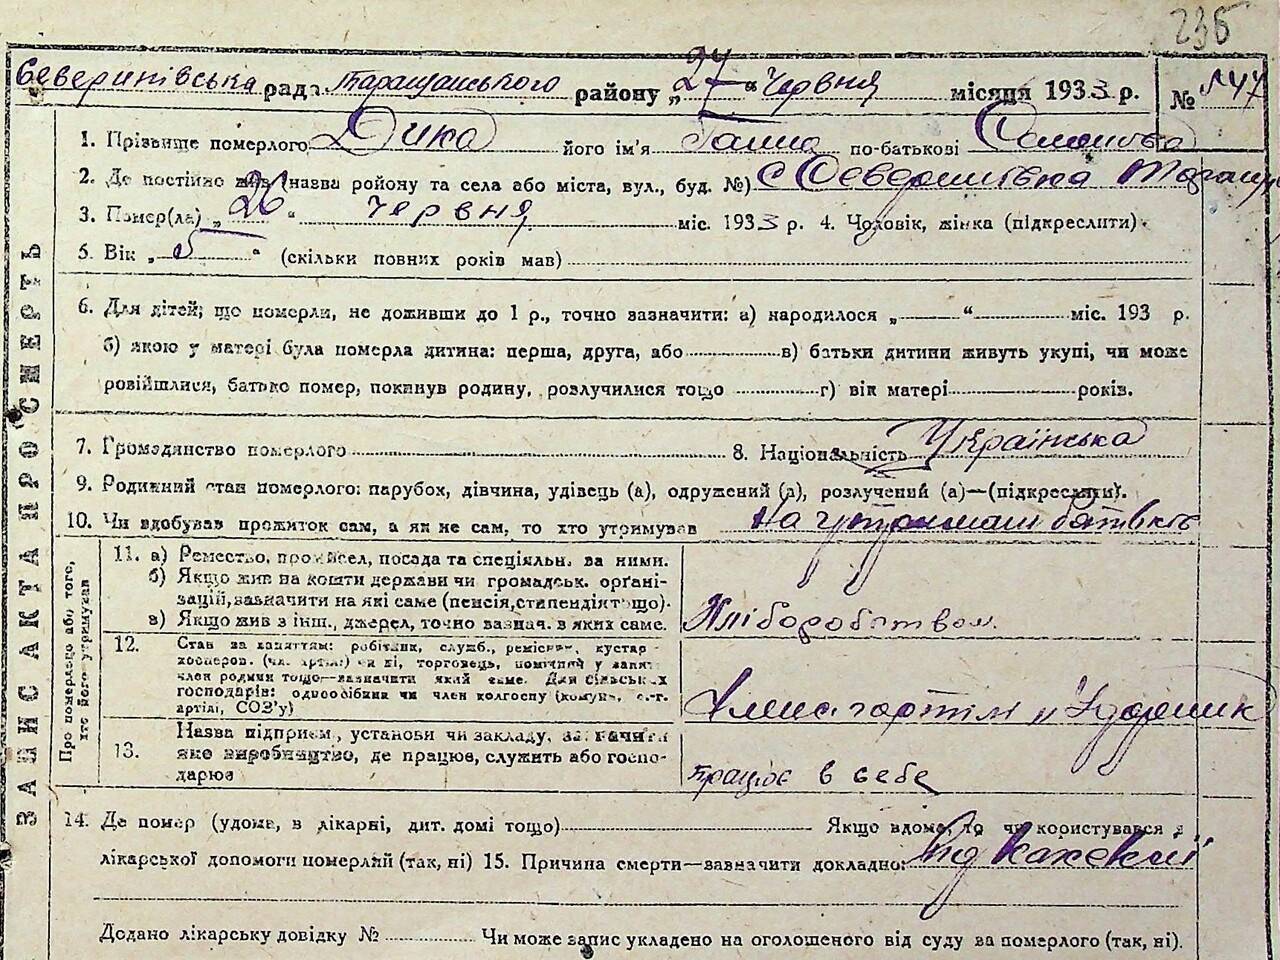 235
Северинівська рада Таращанського району „27“ червня місяця 1933 р. № 147
ЗАПИС АКТА ПРО СМЕРТЬ
1. Прізвище померлого Дика його ім'я Ганна по-батькові Семенівна
2. Де постійно жив (назва району та села або міста, вул., буд. №) с Северинівка Таращ
3. Помер(ла) „26“ червня міс. 1933 р. 4. Чоловік, жінка (підкреслити)
5. Вік „5“ (скільки повних років мав)
6. Для дітей; що померли, не доживши до 1 р., точно зазначити: а) народилося „ “ міс. 193 р.
б) якою у матері була померла дитина: перша, друга, або в) батьки дитини живуть укупі, чи може
розійшлися, батько помер, покинув родину, розлучилися тощо г) вік матері років.
7. Громадянство померлого 8. Національність Українська
9. Родинний стан померлого: парубок, дівчина, удівець (а), одружений (а), розлучений (а)—(підкреслити).
10. Чи здобував прожиток сам, а як не сам, то хто утримував на утриманні батьків
Про померлого або того, хто його утримував
11. а) Ремество, промисел, посада та спеціяльн. за ними.
б) Якщо жив на кошти держави чи громадськ. органі-
зацій, зазначити на які саме (пенсія, стипендія тощо).
в) Якщо жив з інш., джерел, точно зазнач. з яких саме.
Хліборобством.
12. Стан за заняттям: робітник, служб., ремісник, кустар
кооперов. (чл. артілі) чи ні, торговець, помічний у занят.
член родини тощо—зазначити який саме. Для сільських
господарів: одноосібник чи член колгоспу (комун, с.-г.
артілі, СОЗ'у)
Член с. г артілі „Ударник
13. Назва підприєм., установи чи закладу, зазначити
яке виробництво, де працює, служить або госпо-
дарює
працює в себе
14. Де помер (удома, в лікарні, дит. домі тощо) Якщо вдома, то чи користувався з
лікарської допомоги померлий (так, ні) 15. Причина смерти—зазначити докладно: Від
Додано лікарську довідку № Чи може запис укладено на оголошеного від суду за померлого (так, ні).